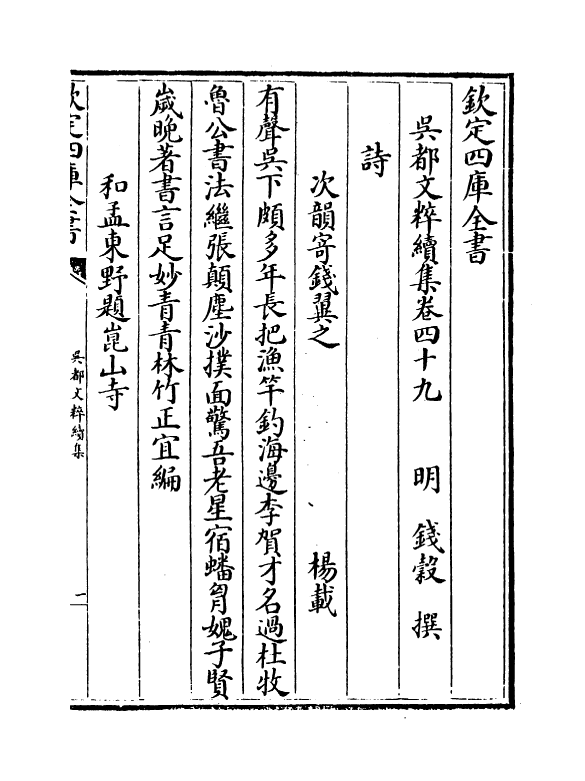 欽定四庫全書
吳都文粹續集卷四十九 明 錢穀 撰
詩
次韻寄錢翼之 楊載
有聲吳下頗多年長把漁竿釣海邊李賀才名過杜牧
魯公書法繼張顛塵沙撲面驚吾老星宿蟠胷媿子賢
歲晩著書言足妙青青林竹正宜編
和孟東野題崑山寺
欽定四庫全書
吳都文粹續集